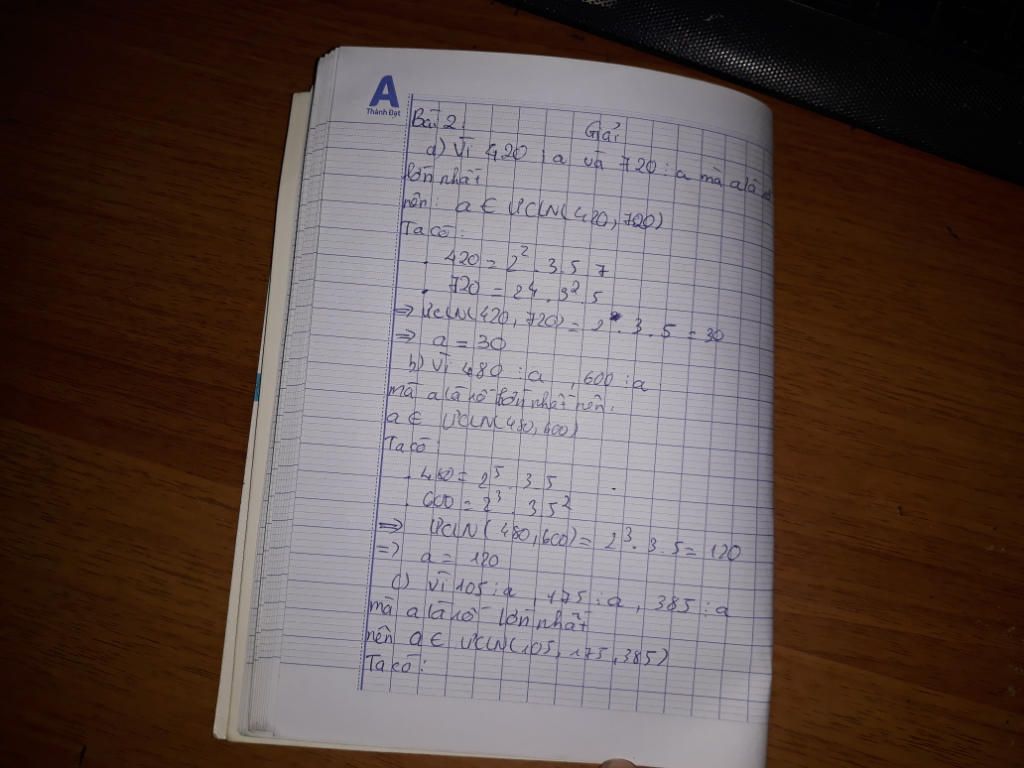 A
Thành Đạt
Bài 2
Giải
a) Vì 420 ⋮ a và 720 ⋮ a mà a là
lớn nhất
nên: a ∈ ƯCLN(420, 720)
Ta có:
. 420 = 2². 3 5 7
. 720 = 2⁴. 3² 5
=> ƯCLN(420, 720) = 2 . 3 . 5 = 30
=> a = 30
b) Vì 480 ⋮ a , 600 ⋮ a
mà a là số lớn nhất nên:
a ∈ ƯCLN(480, 600)
Ta có:
. 480 = 2⁵ . 3 5
. 600 = 2³ . 3 5²
=> ƯCLN(480, 600) = 2³ . 3 . 5 = 120
=> a = 120
c) Vì 105 ⋮ a , 175 ⋮ a , 385 ⋮ a
mà a là số lớn nhất
nên a ∈ ƯCLN(105, 175, 385)
Ta có: